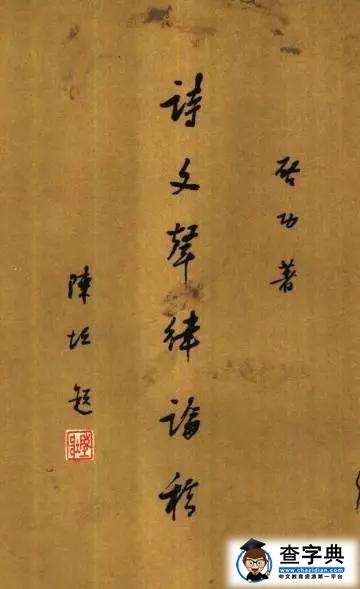 启功著
詩文聲律論稿
陳垣題
查字典
www.chazidian.com
中文教育资源第一平台